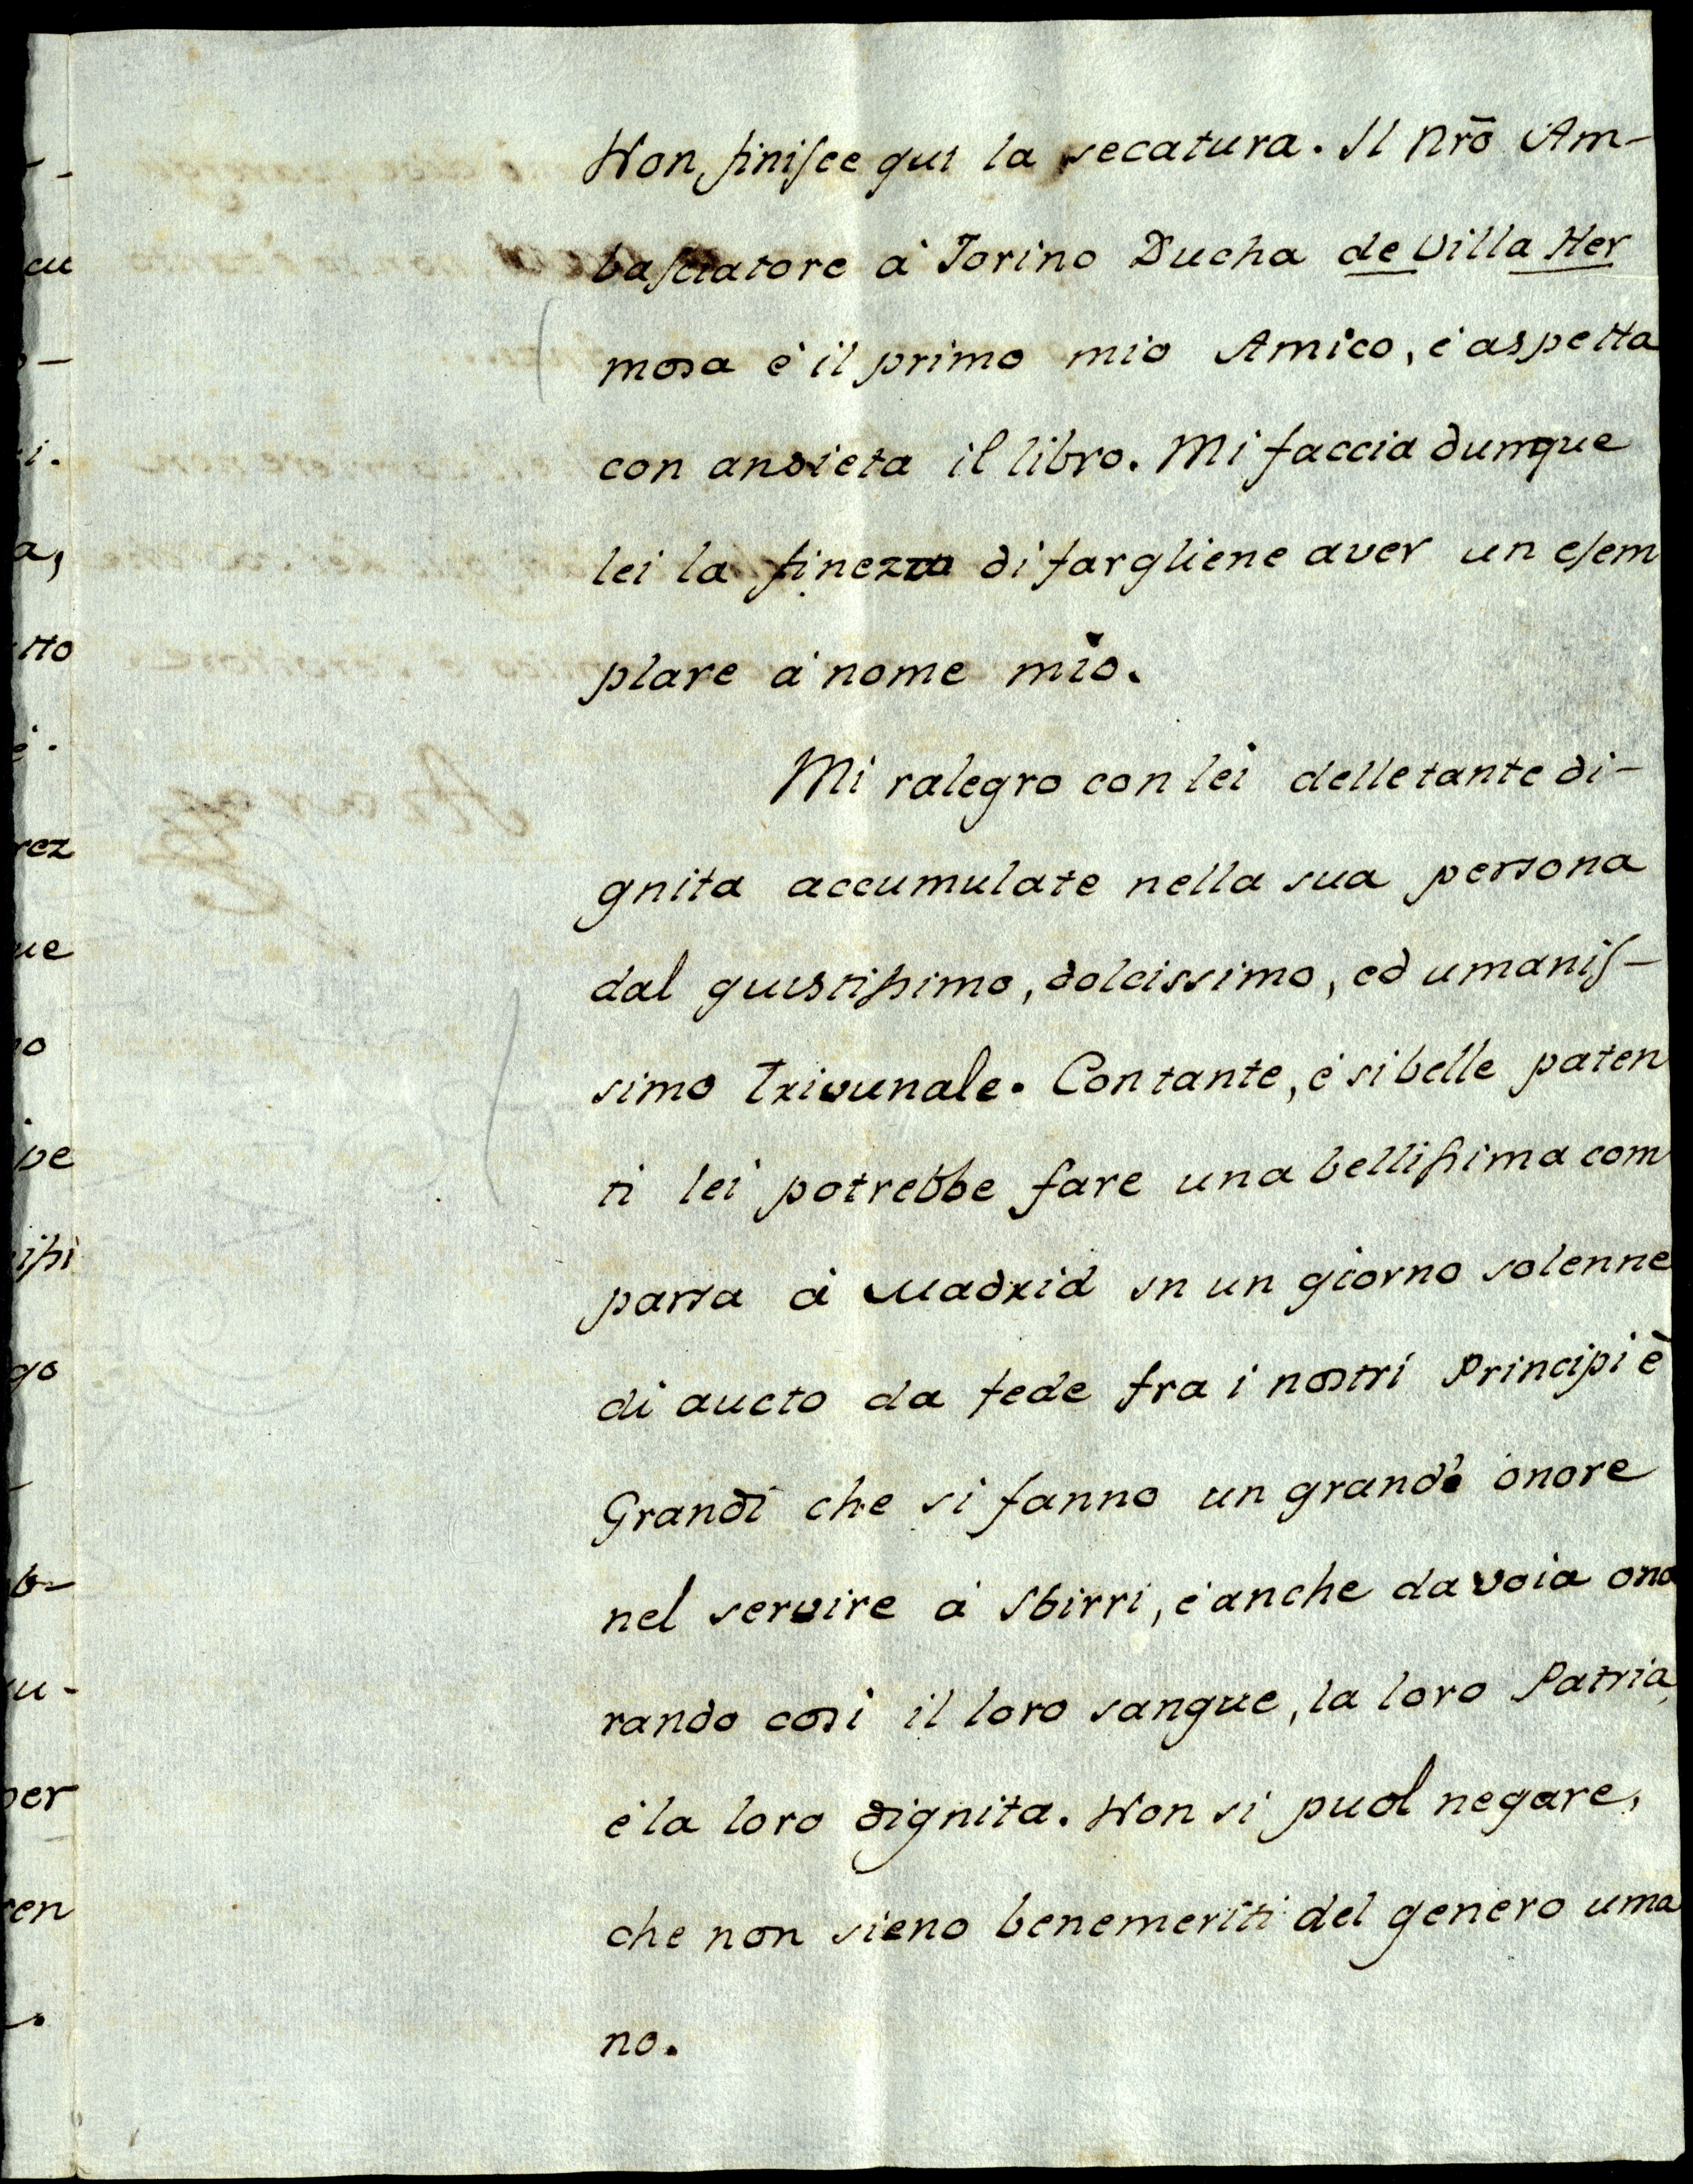 Non finisce qui la secatura. Il nrõ Am-
basciatore à Torino Ducha de Villa Her
mosa è il primo mio Amico, è aspetta
con ansieta il libro. Mi faccia dunque
lei la finezza di fargliene aver un esem
plare à nome mio.
Mi ralegro con lei delle tante di-
gnita accumulate nella sua persona
dal guistissimo, dolcissimo, ed umanis-
simo Trivunale. Con tante, è si belle paten
ti lei potrebbe fare una bellissima com
parsa à Madrid in un giorno solenne
di aucto da fede fra i nostri Principi è
Grandi che si fanno un grande onore
nel servire à Sbirri, è anche da voia ono
rando cosi il loro sangue, la loro Patria,
è la loro dignita. Non si puol negare,
che non sieno benemeriti del genero uma
no.
cu
i.
a,
tto
è.
rez
ue
no
ve
issi
go
b-
u-
per
ren